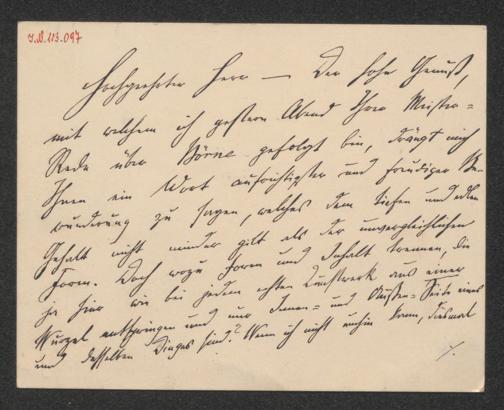 I.N. 113.097
Hochgeehrter Herr — Der hohe Genuß,
mit welchem ich gestern Abend Ihrer Meister-
Rede über Börne gefolgt bin, drängt mich
Ihnen ein Wort aufrichtigster und freudiger Be-
wunderung zu sagen, welches dem tiefen und edlen
Gehalt nicht minder gilt als der unvergleichlichen
Form. Doch wozu Form und Inhalt trennen, die
ja hier wie bei jedem echten Kunstwerk aus einer
Wurzel entspringen und nur Innen- und Außen-Seite eines
und desselben Dinges sind? Wenn ich nicht umhin kann, diesmal